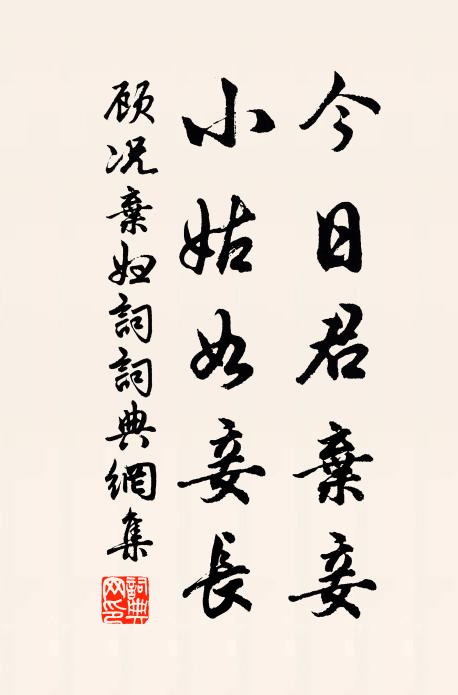 今日君棄妾
小姑如妾長
顾况棄婦詞詞典網集
詞典網印